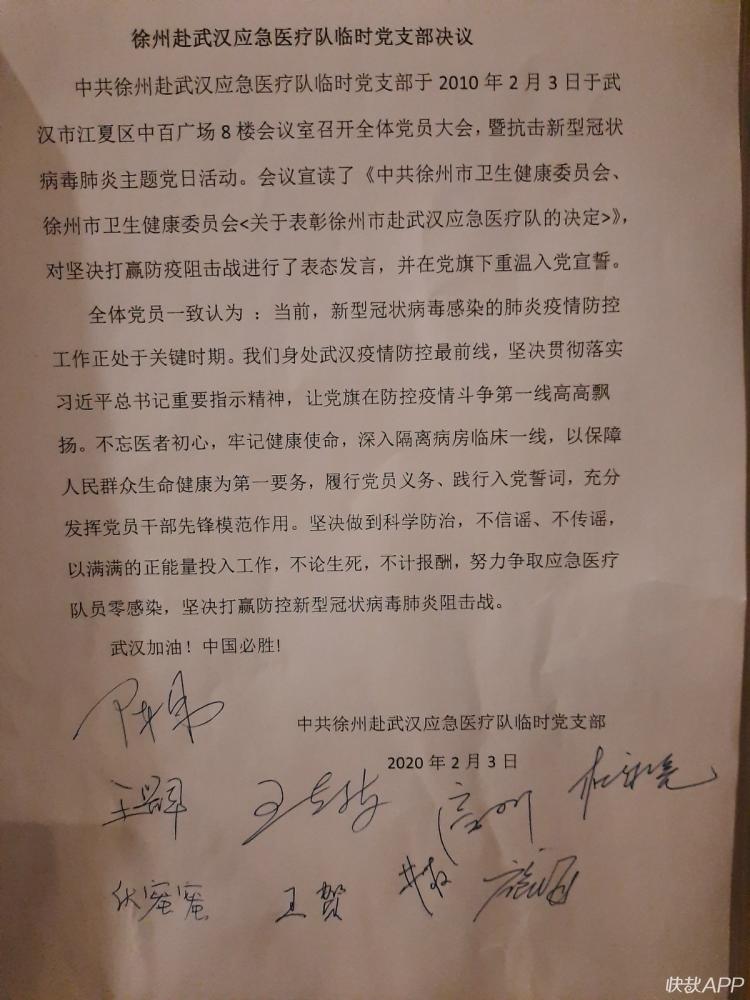 徐州赴武汉应急医疗队临时党支部决议
中共徐州赴武汉应急医疗队临时党支部于2010年2月3日于武
汉市江夏区中百广场8楼会议室召开全体党员大会，暨抗击新型冠状
病毒肺炎主题党日活动。会议宣读了《中共徐州市卫生健康委员会、
徐州市卫生健康委员会<关于表彰徐州市赴武汉应急医疗队的决定>》，
对坚决打赢防疫阻击战进行了表态发言，并在党旗下重温入党宣誓。
全体党员一致认为 ：当前，新型冠状病毒感染的肺炎疫情防控
工作正处于关键时期。我们身处武汉疫情防控最前线，坚决贯彻落实
习近平总书记重要指示精神，让党旗在防控疫情斗争第一线高高飘
扬。不忘医者初心，牢记健康使命，深入隔离病房临床一线，以保障
人民群众生命健康为第一要务，履行党员义务、践行入党誓词，充分
发挥党员干部先锋模范作用。坚决做到科学防治，不信谣、不传谣，
以满满的正能量投入工作，不论生死，不计报酬，努力争取应急医疗
队员零感染，坚决打赢防控新型冠状病毒肺炎阻击战。
武汉加油！中国必胜！
中共徐州赴武汉应急医疗队临时党支部
2020年2月3日
伏蜜蜜
王贺
快哉APP